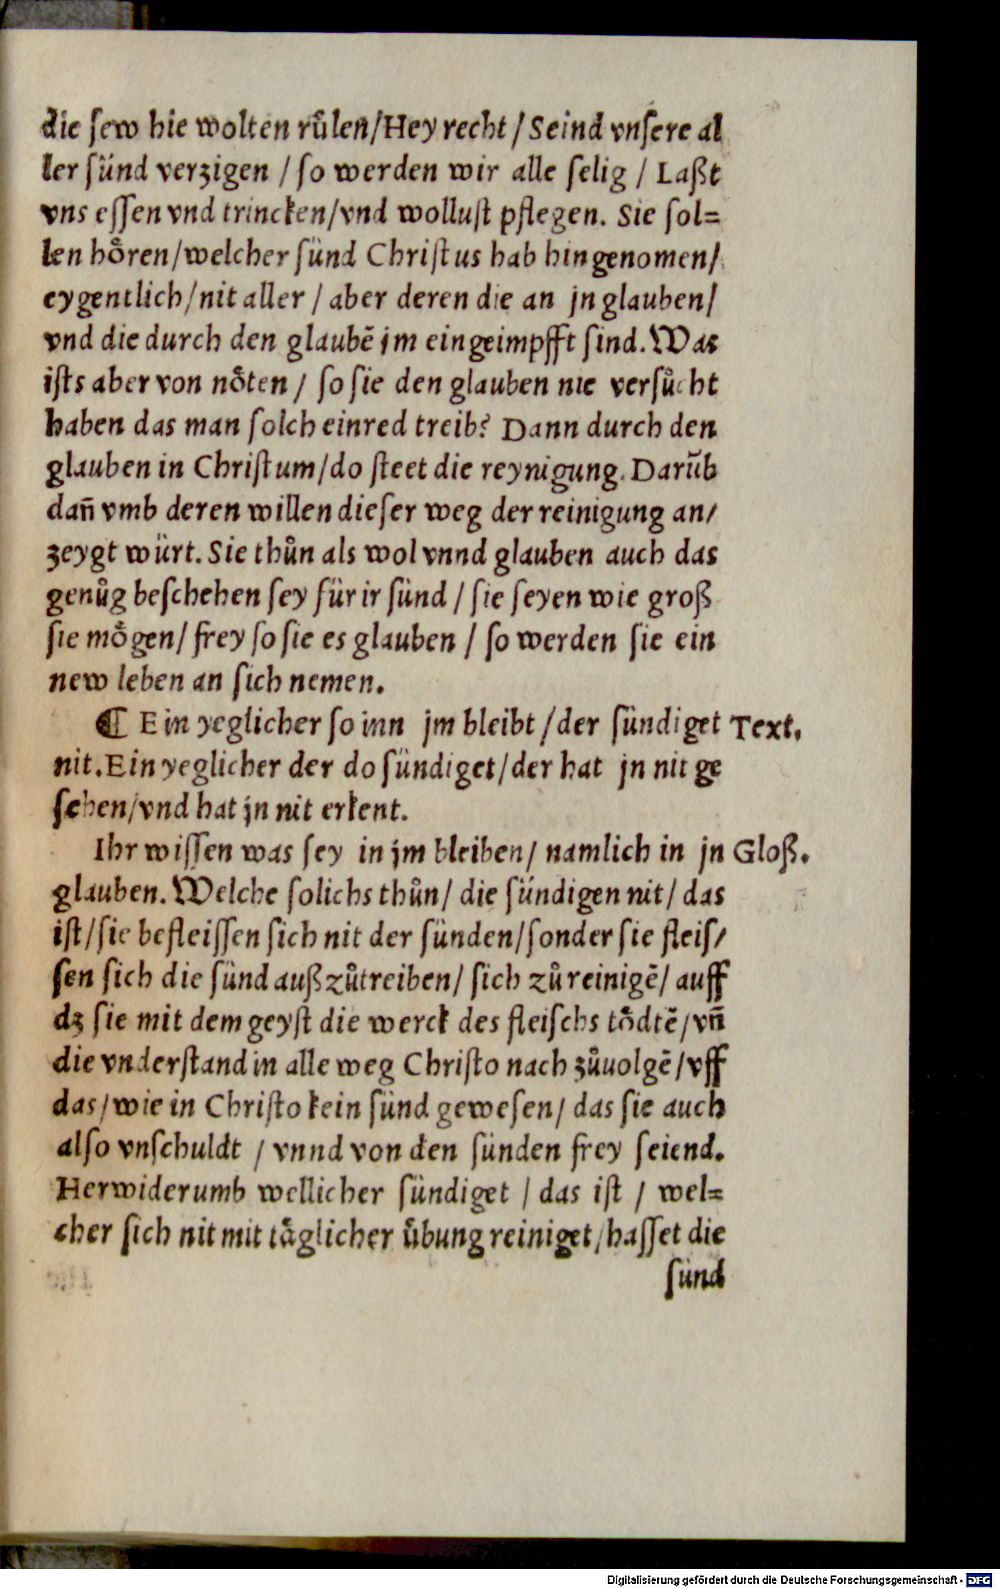 die ſew hie wolten růlen/Hey recht/Seind vnſere al
ler ſünd verzigen / ſo werden wir alle ſelig / Laßt
vns eſſen vnd trincken/vnd wolluſt pflegen. Sie ſol=
len hoͤren/welcher ſünd Chriſtus hab hingenomen/
eygentlich/nit aller / aber deren die an jn glauben/
vnd die durch den glaubē jm eingeimpfft ſind. Was
iſts aber von noͤten / ſo ſie den glauben nie verſůcht
haben das man ſolch einred treib? Dann durch den
glauben in Chriſtum/do ſteet die reynigung. Darūb
dañ vmb deren willen dieſer weg der reinigung an/
zeygt würt. Sie thůn als wol vnnd glauben auch das
genůg beſchehen ſey für ir ſünd / ſie ſeyen wie groß
ſie moͤgen/ frey ſo ſie es glauben / ſo werden ſie ein
new leben an ſich nemen.
¶ Ein yeglicher ſo inn jm bleibt /der ſündiget Text.
nit. Ein yeglicher der do ſündiget/der hat jn nit ge
ſehen/vnd hat jn nit erkent.
Ihr wiſſen was ſey in jm bleiben/ namlich in jn Gloß.
glauben. Welche ſolichs thůn/ die ſündigen nit/ das
iſt/ſie befleiſſen ſich nit der ſünden/ſonder ſie fleiſ/
ſen ſich die ſünd auß zůtreiben/ ſich zů reinigē/ auff
dz ſie mit dem geyſt die werck des fleiſchs toͤdtē/vñ
die vnderſtand in alle weg Chriſto nach zůuolgē/vff
das/wie in Chriſto kein ſünd geweſen/ das ſie auch
alſo vnſchuldt / vnnd von den ſünden frey ſeiend.
Herwiderumb wellicher ſündiget / das iſt / wel=
cher ſich nit mit taͤglicher uͤbung reiniget/haſſet die
ſünd
Digitalisierung gefördert durch die Deutsche Forschungsgemeinschaft - DFG